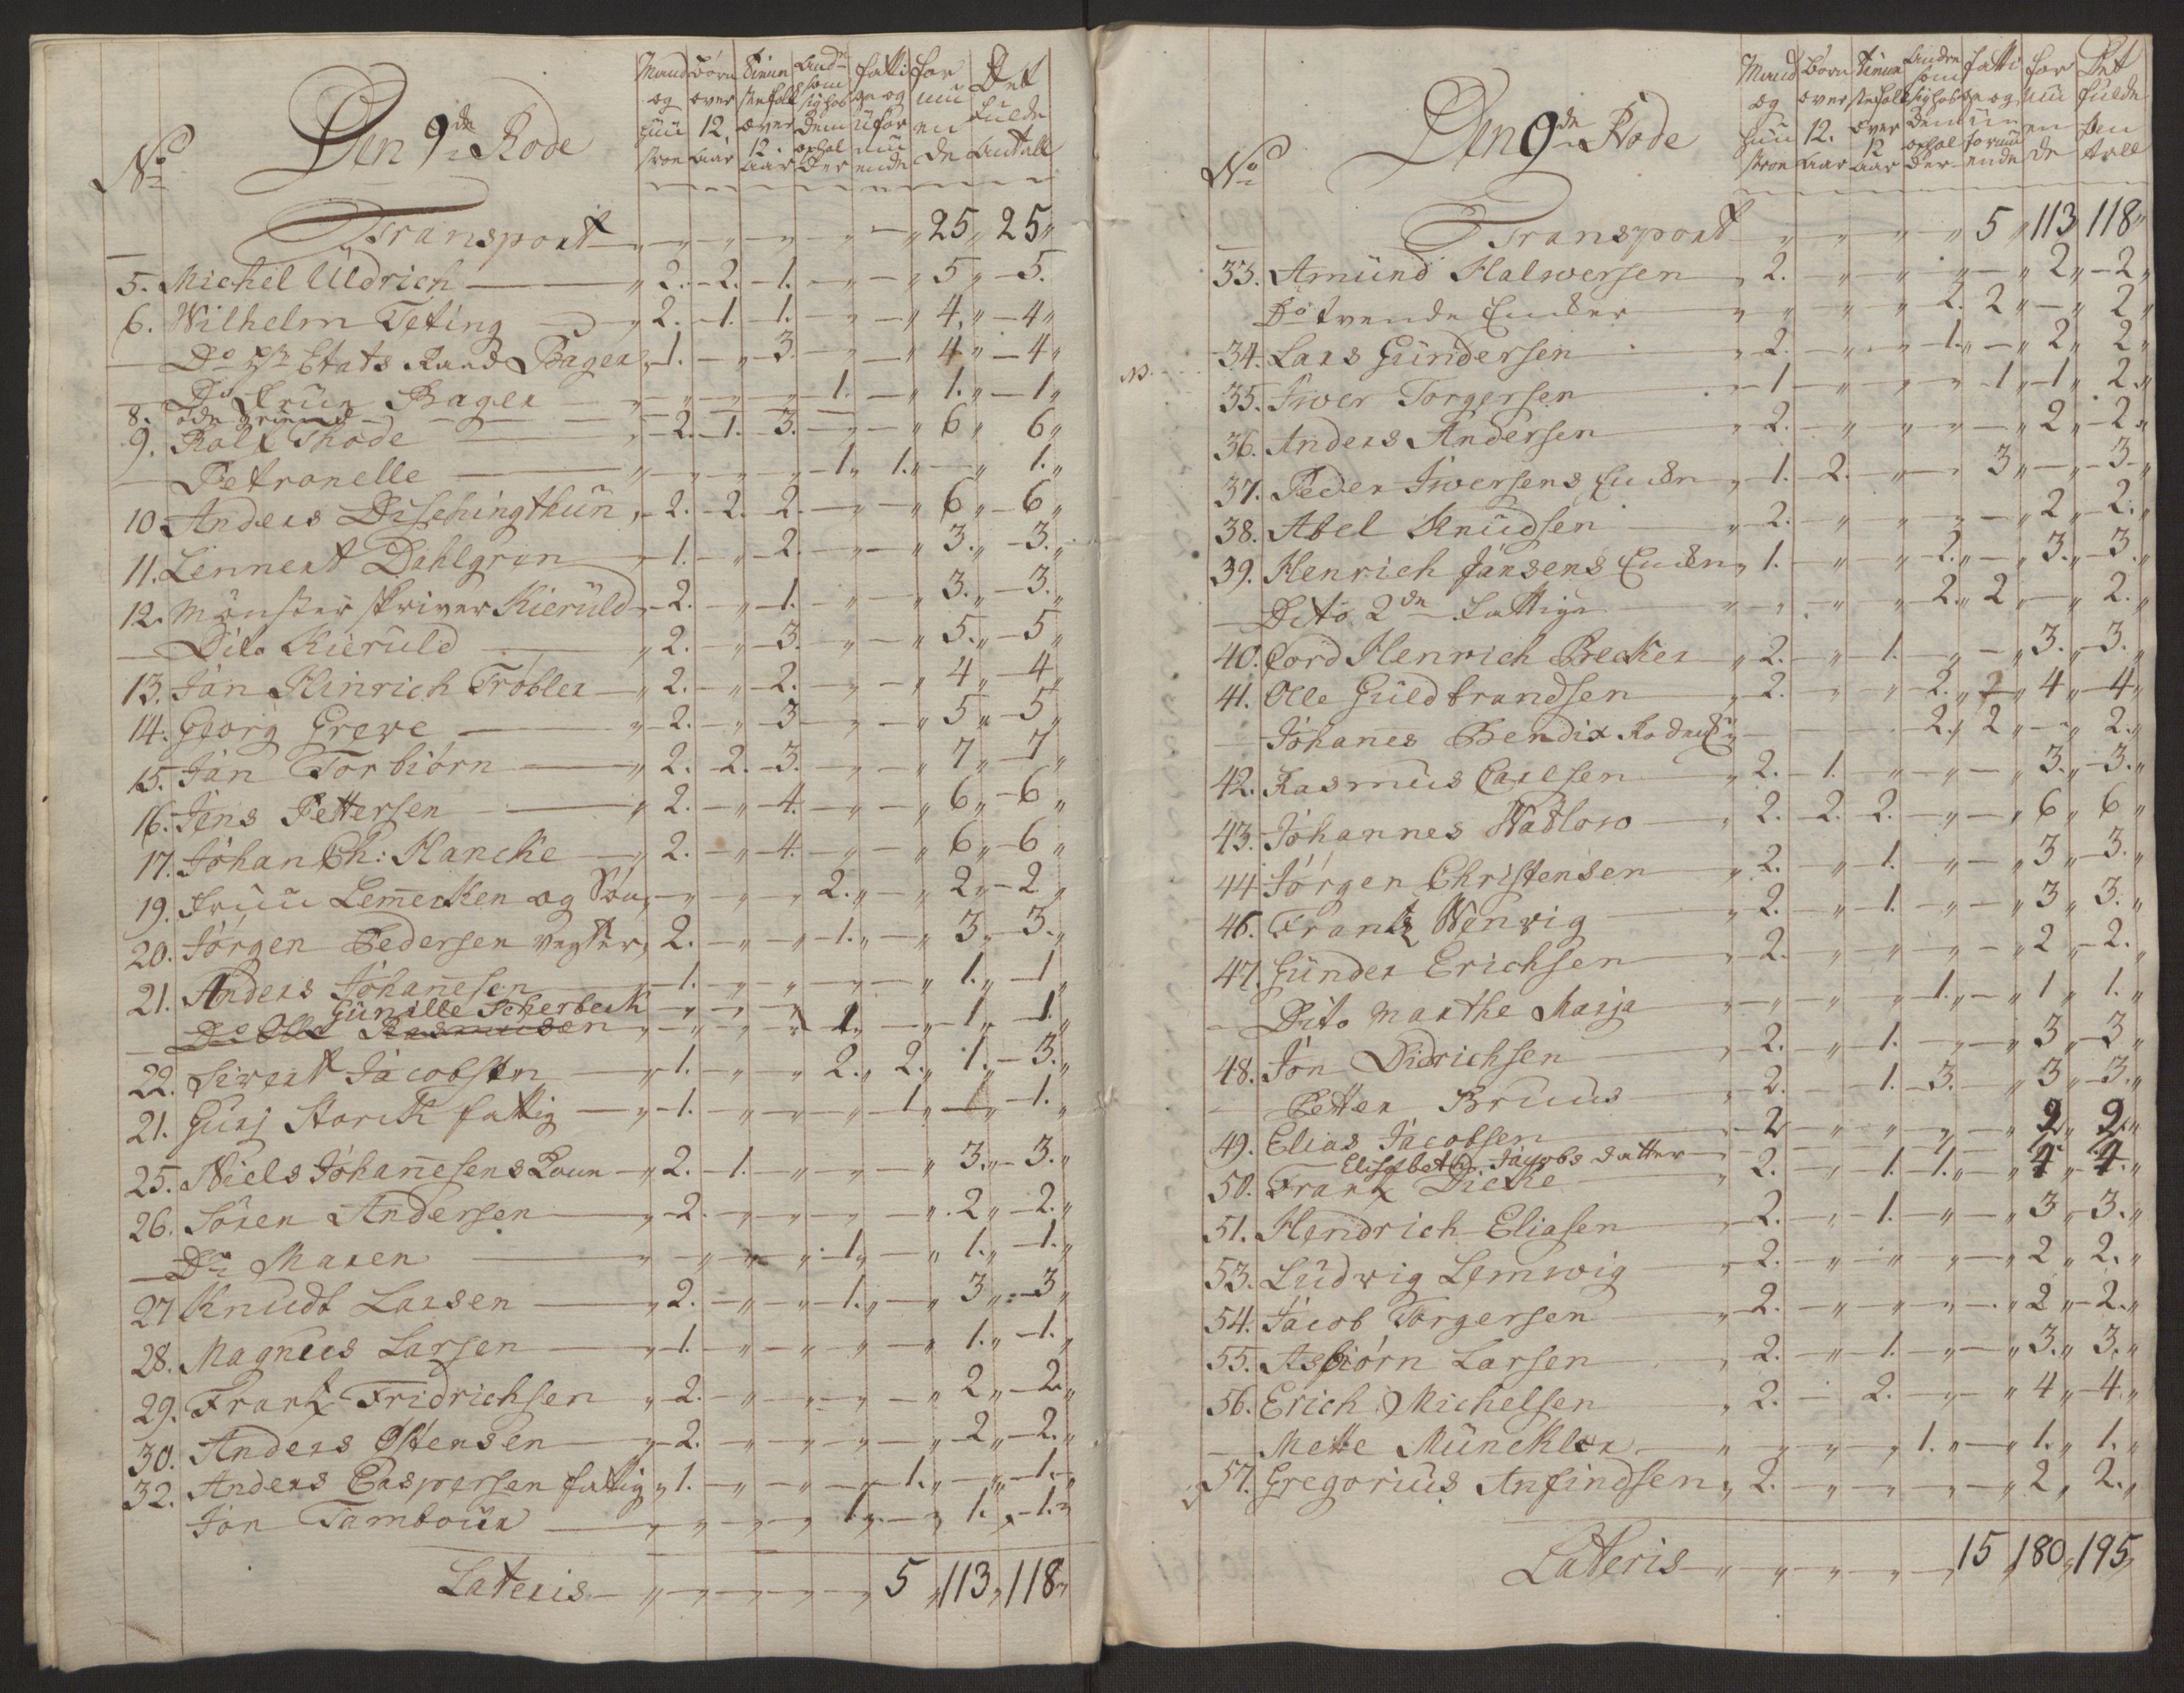 No
Den 9de Rode
Mand og Huustroe
Börn over 12. Aar
Tienistefolk over 12. Aar
Andre som sig hos dem ophol der
fatti ge og uformuende
for muende
Det fulde Antall
Transport „ „ „ „ „ 25„ 25„
5. Michel Uldrich 2. 2. 1. „ „ 5„ 5.
6. Wilhelm Teting 2. 1. 1. „ „ 4„ 4„
Do Etats Raad Bager 1. „ 3. „ „ 4„ 4„
Do Frue Bager „ „ „ 1. „ 1. 1„
8. öde
9. Rolf Thode 2. 1. 3. „ „ 6„ 6„
Petronelle „ „ „ 1„ 1. „ 1.„
10. Anders Dischingthun 2. 2. 2. „ „ 6„ 6„
11. Lennert Dahlgren 1. „ 2. „ „ 3. 3.„
12. Mönster skriver Kieruld 2. „ 1. „ „ 3„ 3.
Dito Kieruld 2. „ 3. „ „ 5„ 5„
13. Jan Hinrich Tröbler 2. „ 2. „ „ 4„ 4„
14. Georg Greve 2. „ 3 „ „ 5„ 5„
15. Jan Torbiörn 2. 2. 3. „ „ 7„ 7„
16. Jens Pettersen 2. „ 4. „ „ 6„ 6„
17. Johan Ch: Hancke 2. „ 4. „ „ 6„ 6„
19. Fruu Lemecken og Sön „ „ „ 2. „ 2„ 2„
20. Jörgen Pedersen vegter 2. „ „ 1. „ 3„ 3.„
21. Anders Johanesen 1. „ „ „ „ 1„ 1„
Gunille Scherbeck
Do Olle Rasmusen „ „ „ 1. „ 1„ 1.„
22. Sivert Jacobsen 1. „ „ 2. 2. 1. 3.„
21. Guri Storch fattig 1. „ „ „ 1„ 1„ 1.
25. Niels Johanesens 2. 1. „ „ „ 3„ 3.„
26. Sören Andersen 2. „ „ „ „ 2„ 2.„
Do Maren „ „ „ 1„ „ 1. 1.
27 Knudt Larsen 2. „ „ 1. „ 3„ 3„
28. Magnus Larsen 1. „ „ „ „ 1. 1.„
29. Frantz Fridrichsen 2. „ „ „ „ 2„ 2„
30. Anders Östensen 2. „ „ „ „ 2„ 2.„
32. Anders Caspersen fattig 1. „ „ „ 1. „ 1.„
Jon Tambour „ „ „ 1. „ 1. 1.„
Lateris „ „ „ „ 5 „113„ 118„
No
Den 9de Rode
Mand og Huustroe
Börn over 12. Aar
Tienistefolk over 12 Aar
Andre som sig hos dem ophol der
fatti ge og uformuende
for muende
Det fulde Antall
Transport „ „ „ „ 5 „113 118„
33. Amund Halwersen 2. „ „ „ „ 2„ 2„
Do tvende Encker „ „ „ 2. 2„ „ 2„
34. Lars Gundersen 2. „ „ 1. „ 2„ 2„
NB.
35. Iwer Torgersen 1 „ „ „ 1„ 1„ 2.„
36. Anders Andersen 2. „ „ „ „ 2„ 2„
37. Peder Iwersens Encke 1. 2. „ „ 3„ „ 3„
38. Abel Knudsen 2. „ „ „ „ 2„ 2.„
39. Henrich Jansens Encke 1. „ „ 2. „ 3. 3.„
Dito 2de Fattige „ „ „ 2. 2„ „ 2.„
40. Cord Henrich Becker 2. „ 1. „ „ 3. 3.„
41. Olle Guldbrandsen 2. „ „ 2. „ 4„ 4„
Johanes Bendix 2„ 2„ „ 2.„
42. Rasmus Carlsen 2. 1. „ „ „ 3„ 3.„
43. Johannes Wadlow 2. 2. 2. „ „ 6„ 6„
44 Jörgen Christensen 2. „ 1. „ „ 3„ 3.„
46. Frantz Wenvig 2. „ 1. „ „ 3„ 3.„
47. Gunder Erichsen 2. „ „ „ „ 2„ 2.„
Dito Marthe Marja „ „ „ 1. „ 1„ 1.„
48. Jon Didrichsen 2. „ 1. „ „ 3„ 3„
Petter Bruus 2. 1. 3. „ 3„ 3.„
49. Elias Jacobsen 2 „ „ „ „ 2„ 2.„
Elisabeth Jacobs datter
50. Frantz Diecke 2. „ 1. 1. „ 4„ 4.„
51. Hendrich Eliasen 2. „ 1. „ „ 3„ 3.„
53. Ludvig Lemwig 2. „ „ „ „ 2„ 2.„
54. Jacob Torgersen 2. „ „ „ „ 2„ 2.„
55. Asbiörn Larsen 2. „ 1. „ „ 3„ 3.„
56. Erich Michelsen 2. 2. „ „ 4„ 4.„
Mette Muncklee „ „ „ 1. „ 1. 1.„
57. Gregorius Anfindsen 2. „ „ „ „ 2„ 2.„
Lateris „ „ „ „ 15 „180„ 195„